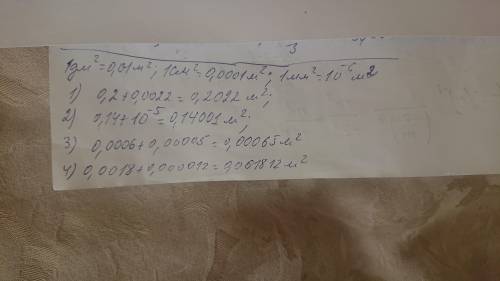 3
1дм²=0,01м²; 1см²=0,0001м²; 1мм²=10⁻⁶м²
1) 0,2+0,0022=0,2022 м²;
2) 0,14+10⁻⁵=0,14001 м²;
3) 0,0006+0,00005=0,00065 м²
4) 0,0018+0,000012=0,001812 м²